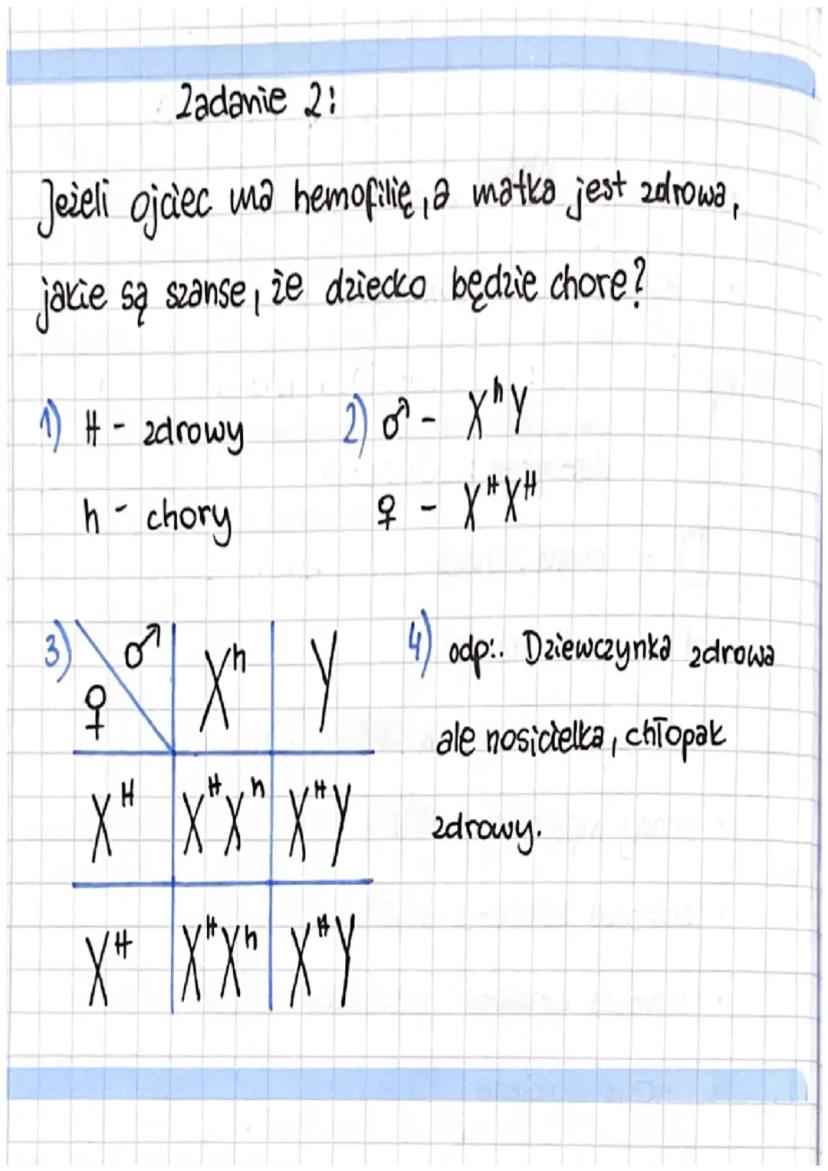 Zadanie 2:
Jeżeli ojciec ma hemofilię, a matka jest zdrowa,
jakie są szanse, że dziecko będzie chore?
1) H - zdrowy
h - chory
2) ♂ - XʰY
♀ - XᴴXᴴ
3) ♂ Xʰ Y
♀
Xᴴ XᴴXʰ XᴴY
Xᴴ XᴴXʰ XᴴY
4) odp:. Dziewczynka zdrowa
ale nosicielka, chłopak
zdrowy.